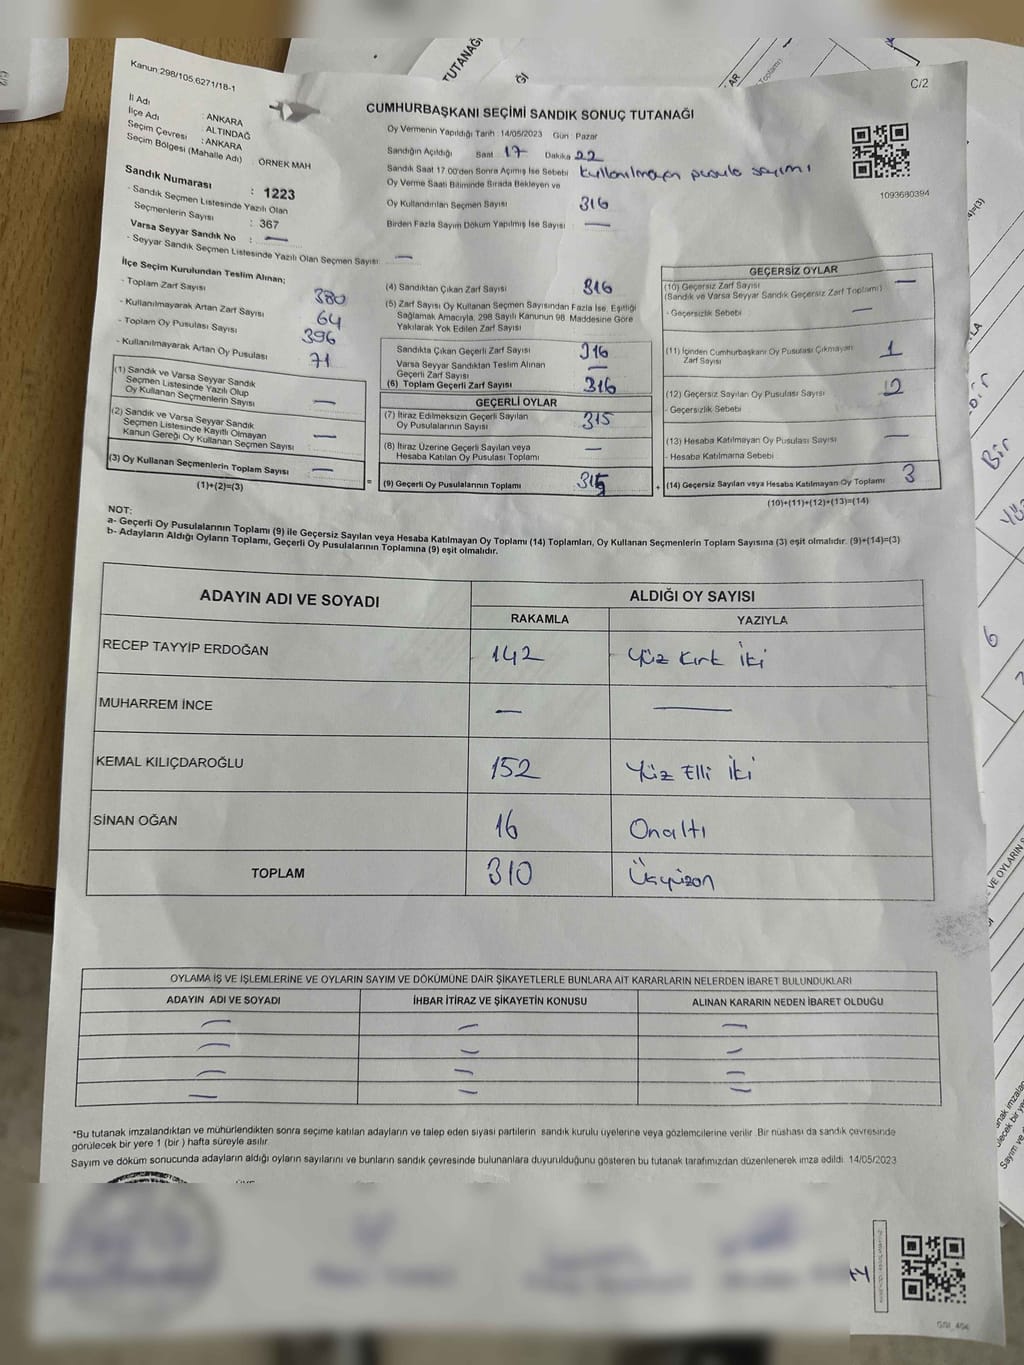 TUTANAĞI
Kanun:298/105,6271/18-1
C/2
CUMHURBAŞKANI SEÇİMİ SANDIK SONUÇ TUTANAĞI
İl Adı : ANKARA
İlçe Adı : ALTINDAĞ
Seçim Çevresi : ANKARA
Seçim Bölgesi (Mahalle Adı) ÖRNEK MAH
Sandık Numarası : 1223
- Sandık Seçmen Listesinde Yazılı Olan
Seçmenlerin Sayısı : 367
Varsa Seyyar Sandık No : —
- Seyyar Sandık Seçmen Listesinde Yazılı Olan Seçmen Sayısı : —
Oy Vermenin Yapıldığı Tarih : 14/05/2023 Gün : Pazar
Sandığın Açıldığı Saat 17 Dakika 22
Sandık Saat 17.00'den Sonra Açımış İse Sebebi kullanılmayan pusula sayımı
Oy Verme Saati Bitiminde Sırada Bekleyen ve
Oy Kullandırılan Seçmen Sayısı 316
Birden Fazla Sayım Döküm Yapılmış İse Sayısı —
1093680394
İlçe Seçim Kurulundan Teslim Alınan;
- Toplam Zarf Sayısı 380
- Kullanılmayarak Artan Zarf Sayısı 64
- Toplam Oy Pusulası Sayısı 396
- Kullanılmayarak Artan Oy Pusulası 71
(1) Sandık ve Varsa Seyyar Sandık
Seçmen Listesinde Yazılı Olup
Oy Kullanan Seçmenlerin Sayısı —
(2) Sandık ve Varsa Seyyar Sandık
Seçmen Listesinde Kayıtlı Olmayan
Kanun Gereği Oy Kullanan Seçmen Sayısı —
(3) Oy Kullanan Seçmenlerin Toplam Sayısı —
(1)+(2)=(3)
(4) Sandıktan Çıkan Zarf Sayısı 316
(5) Zarf Sayısı Oy Kullanan Seçmen Sayısından Fazla İse, Eşitliği
Sağlamak Amacıyla, 298 Sayılı Kanunun 98. Maddesine Göre
Yakılarak Yok Edilen Zarf Sayısı
Sandıkta Çıkan Geçerli Zarf Sayısı 316
Varsa Seyyar Sandıktan Teslim Alınan
Geçerli Zarf Sayısı —
(6) Toplam Geçerli Zarf Sayısı 316
GEÇERLİ OYLAR
(7) İtiraz Edilmeksizin Geçerli Sayılan
Oy Pusulalarının Sayısı 315
(8) İtiraz Üzerine Geçerli Sayılan veya
Hesaba Katılan Oy Pusulası Toplamı —
(9) Geçerli Oy Pusulalarının Toplamı 315
GEÇERSİZ OYLAR
(10) Geçersiz Zarf Sayısı —
(Sandık ve Varsa Seyyar Sandık Geçersiz Zarf Toplamı)
- Geçersizlik Sebebi —
(11) İçinden Cumhurbaşkanı Oy Pusulası Çıkmayan
Zarf Sayısı 1
(12) Geçersiz Sayılan Oy Pusulası Sayısı 2
- Geçersizlik Sebebi
(13) Hesaba Katılmayan Oy Pusulası Sayısı —
- Hesaba Katılmama Sebebi
(14) Geçersiz Sayılan veya Hesaba Katılmayan Oy Toplamı 3
(10)+(11)+(12)+(13)=(14)
NOT:
a- Geçerli Oy Pusulalarının Toplamı (9) ile Geçersiz Sayılan veya Hesaba Katılmayan Oy Toplamı (14) Toplamları, Oy Kullanan Seçmenlerin Toplam Sayısına (3) eşit olmalıdır. (9)+(14)=(3)
b- Adayların Aldığı Oyların Toplamı, Geçerli Oy Pusulalarının Toplamına (9) eşit olmalıdır.
ADAYIN ADI VE SOYADI ALDIĞI OY SAYISI
RAKAMLA YAZIYLA
RECEP TAYYİP ERDOĞAN 142 Yüz Kırk İki
MUHARREM İNCE — —
KEMAL KILIÇDAROĞLU 152 Yüz Elli İki
SİNAN OĞAN 16 Onaltı
TOPLAM 310 Üçyüzon
OYLAMA İŞ VE İŞLEMLERİNE VE OYLARIN SAYIM VE DÖKÜMÜNE DAİR ŞİKAYETLERLE BUNLARA AİT KARARLARIN NELERDEN İBARET BULUNDUKLARI
ADAYIN ADI VE SOYADI İHBAR İTİRAZ VE ŞİKAYETİN KONUSU ALINAN KARARIN NEDEN İBARET OLDUĞU
— — —
— — —
— — —
— — —
*Bu tutanak imzalandıktan ve mühürlendikten sonra seçime katılan adayların ve talep eden siyasi partilerin sandık kurulu üyelerine veya gözlemcilerine verilir. Bir nüshası da sandık çevresinde
görülecek bir yere 1 (bir) hafta süreyle asılır.
Sayım ve döküm sonucunda adayların aldığı oyların sayılarını ve bunların sandık çevresinde bulunanlara duyurulduğunu gösteren bu tutanak tarafımızdan düzenlenerek imza edildi. 14/05/2023
Bir
6
VE OYLARIN